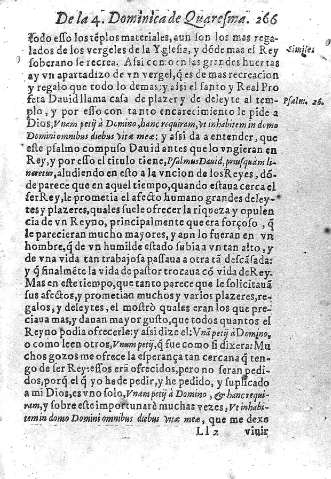 De la 4. Dominica de Quaresma. 266
Todo esso los tẽplos materiales, aun son los mas rega
lados de los vergeles de la Yglesia, y dõde mas el Rey
soberano se recrea. Assi como en las grandes huertas
ay vn apartadizo de vn vergel, q̃ es de mas recreacion
y regalo que todo lo demas: y assi el santo y Real Pro
feta Dauid llama casa de plazer y de deleyte al tem-
plo, y por esso con tanto encarecimiento le pide a
Dios, Vnam petij à Domino, hanc requiram, vt inhabitem in domo
Domini omnibus diebus vitæ meæ; y assi da a entender, que
este psalmo compuso Dauid antes que lo vngieran en
Rey, y por esso el titulo tiene, Psalmus Dauid, priusquàm li-
niretur, aludiendo en esto a la vncion de los Reyes, dõ
de parece que en aquel tiempo, quando estaua cerca el
ser Rey, le prometia el afecto humano grandes deley-
tes y plazeres, quales suele ofrecer la riqueza y opulen
cia de vn Reyno, principalmente que era forçoso, q̃
le parecieran mucho mayores, y aun lo fueran en vn
hombre, q̃ de vn humilde estado subia a vn tan alto, y
de vna vida tan trabajosa passaua a otra tã descãsada:
y q̃ finalmẽte la vida de pastor trocaua cõ vida de Rey.
Mas en este tiempo, que tanto parece que le solicitauã
sus afectos, y prometian muchos y varios plazeres, re-
galos, y deleytes, el mostrò quales eran los que pre-
ciaua mas, y dauan mayor gusto, que todos quantos el
Reyno podia ofrecerle: y assi dize el: Vnã petij à Domino,
o como leen otros, Vnum petij, q̃ fue como si dixera: Mu
chos gozos me ofrece la esperança tan cercana q̃ ten-
go de ser Rey: essos era ofrecidos, pero no seran pedi-
dos, porq̃ el q̃ yo he de pedir, y he pedido, y suplicado
a mi Dios, es vno solo, Vnam petij à Domino, & hanc requi-
ram, y sobre este importunarè muchas vezes, Vt inhabi-
tem in domo Domini omnibus diebus vitæ meæ, que me dexe
Ll 2 viuir
Simile.
Psalm. 26.